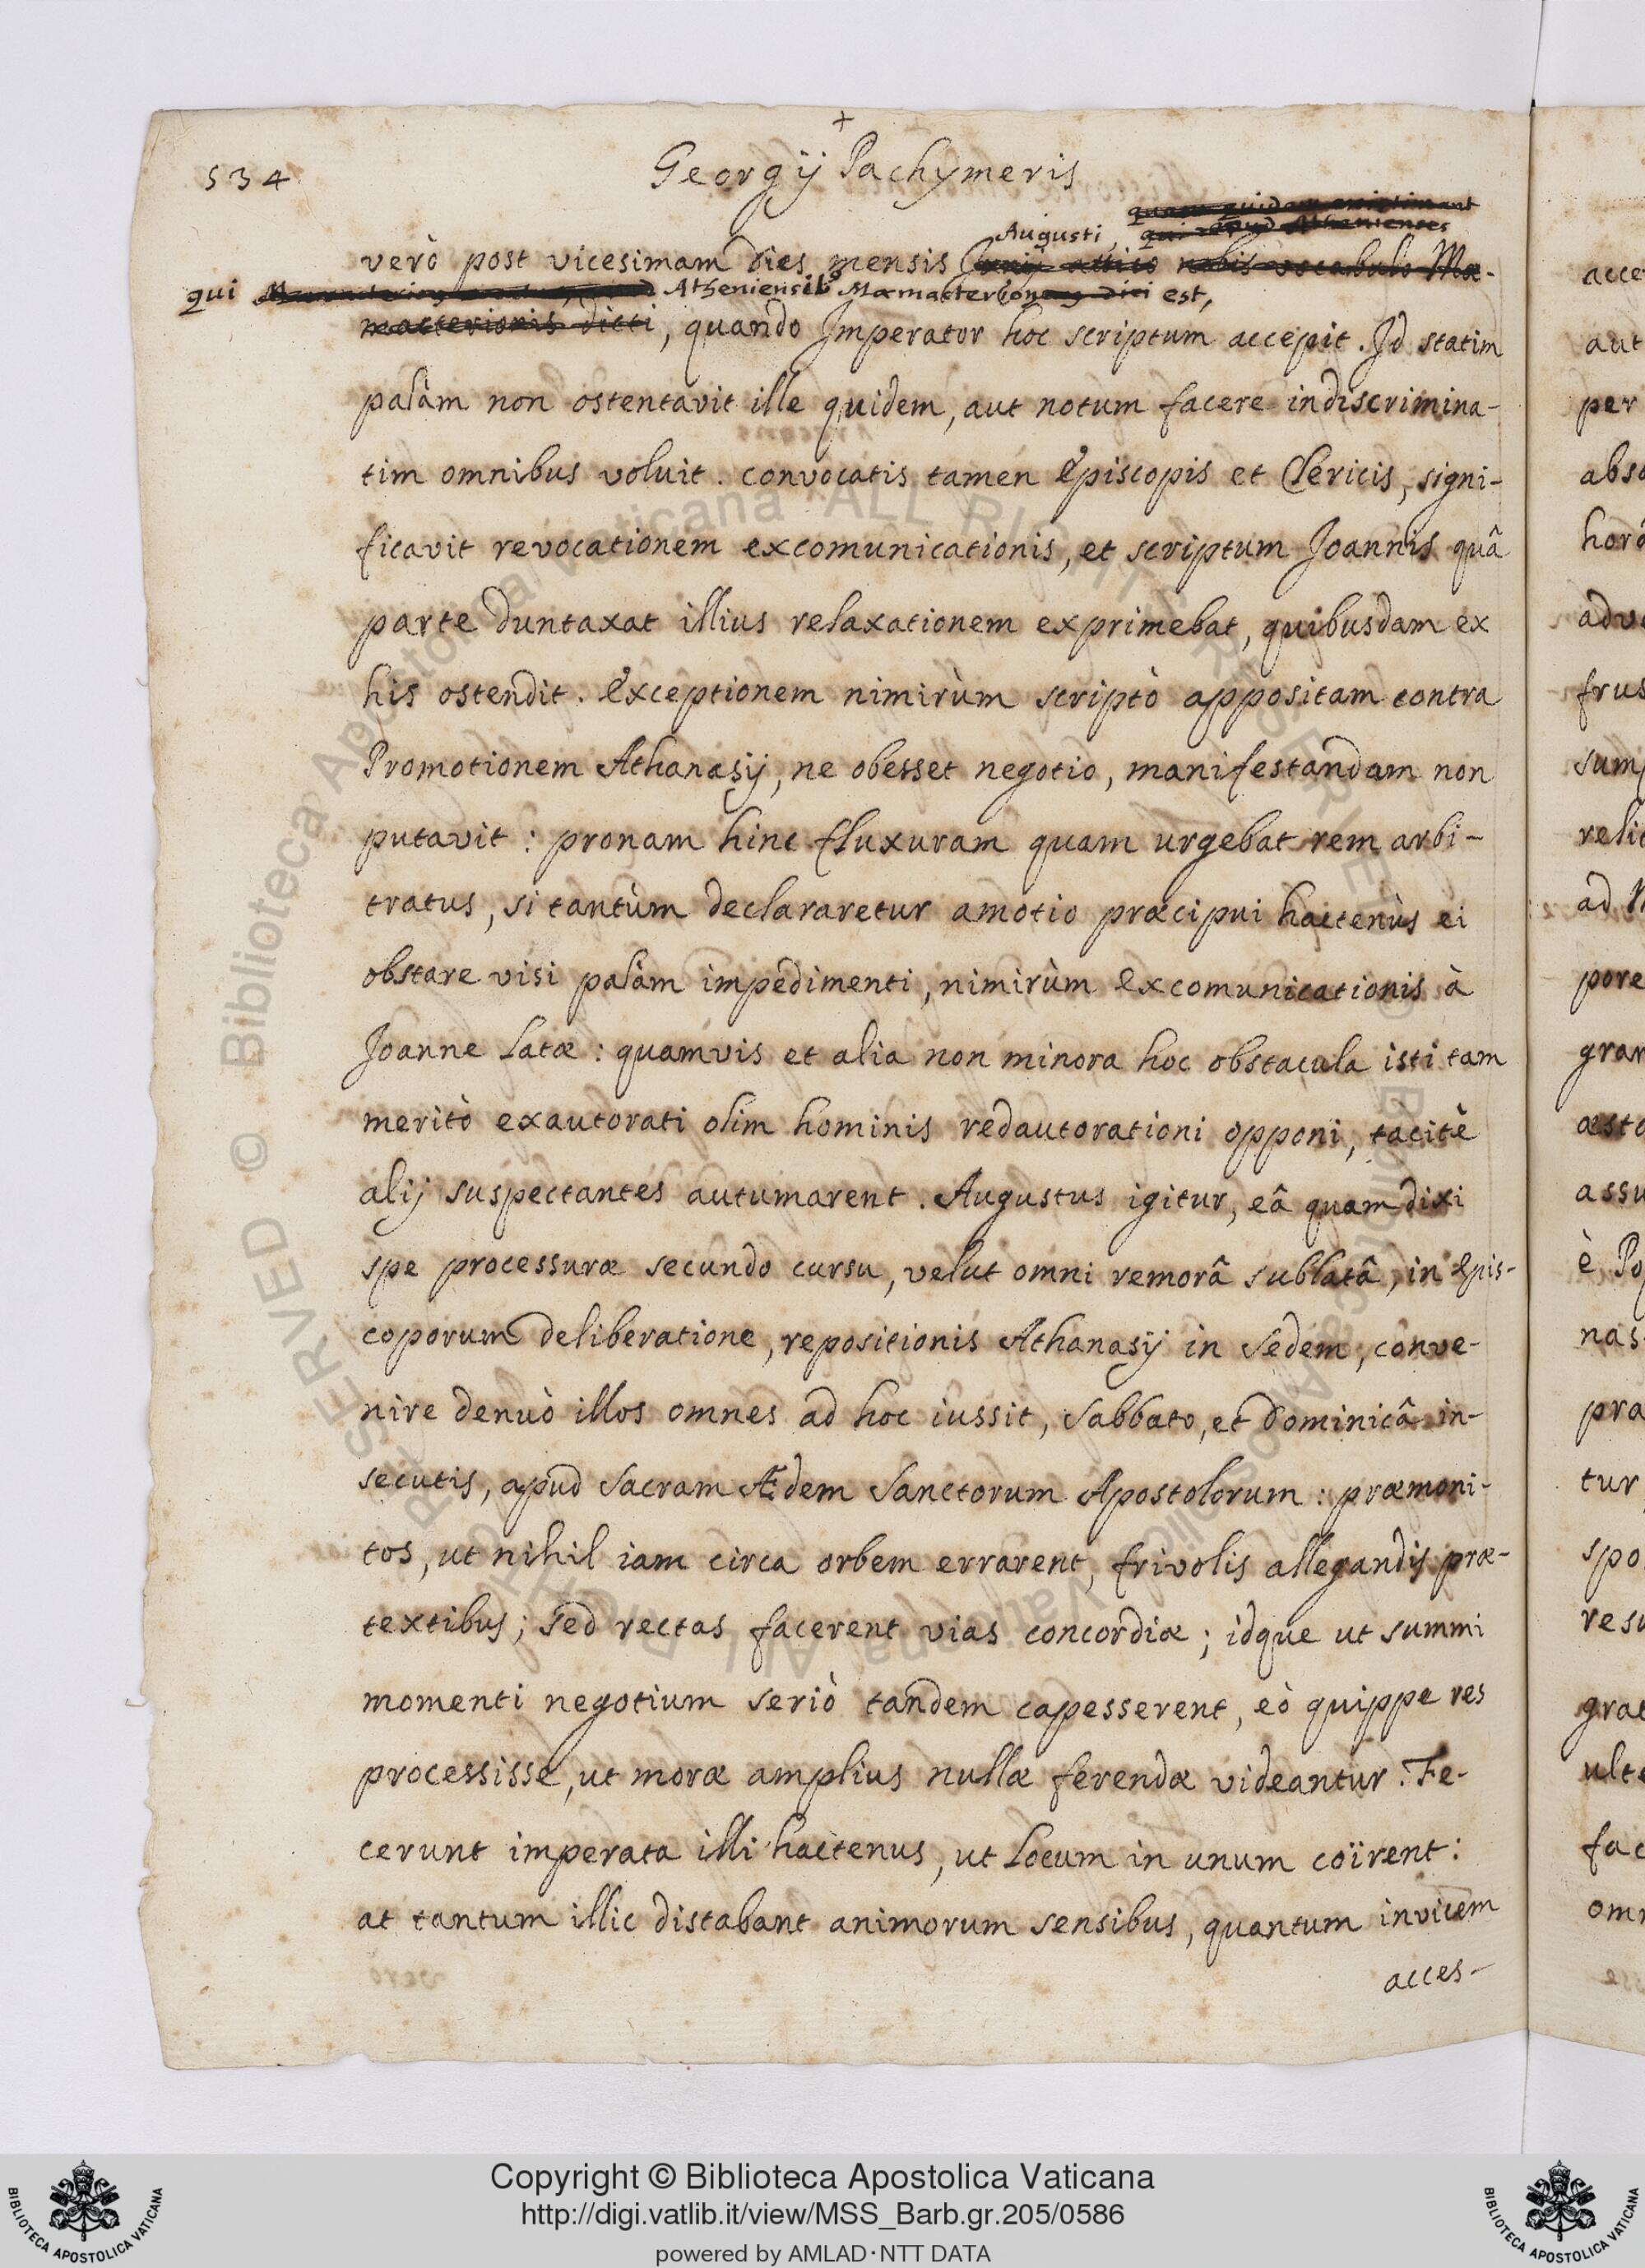 +
534
Georgij Pachymeris
quam quidam existimant
Augusti, qui apud Athenienses
verò post vicesimam dies mensis Iunij attico nobis vocabulo Mæ-
qui Atheniensib9 Mæmacterion dici est,
macterionis dicti, quando Imperator hoc scriptum accepit. Id statim
palàm non ostentavit ille quidem, aut notum facere indiscrimina-
tim omnibus voluit. convocatis tamen Episcopis et Clericis, signi-
ficavit revocationem excomunicationis, et scriptum Joannis quâ
parte duntaxat illius relaxationem exprimebat, quibusdam ex
his ostendit. Exceptionem nimirùm scriptò appositam contra
Promotionem Athanasij, ne obesset negotio, manifestandam non
putavit: pronam hinc fluxuram quam urgebat rem arbi-
tratus, si tantùm declararetur amotio præcipui hactenùs ei
obstare visi palàm impedimenti, nimirùm excomunicationis à
Joanne latæ: quamvis et alia non minora hoc obstacula isti tam
meritò exautorati olim hominis redautorationi opponi, tacitè
alij suspectantes autumarent. Augustus igitur, eâ quam dixi
spe processuræ secundo cursu, velut omni remorâ sublatâ, in Epis-
coporum deliberatione, repositionis Athanasij in Sedem, conve-
nire denuò illos omnes ad hoc iussit, Sabbato, et Dominicâ in-
secutis, apud Sacram Ædem Sanctorum Apostolorum: præmoni-
tos, ut nihil iam circa orbem errarent, frivolis allegandis præ-
textibus; sed rectas facerent vias concordiæ; idque ut summi
momenti negotium seriò tandem capesserent, eò quippe res
processisse, ut moræ amplius nullæ ferendæ videantur. Fe-
cerunt imperata illi hactenus, ut locum in unum coïrent:
at tantum illic distabant animorum sensibus, quantum invicem
acces-
acce
aut
per
abso
horâ
adve
frus
sump
relic
ad
pore
gran
æsto
assu
è Po
nas
pra
tur
spo
resu
grae
ulte
fac
omn
© Biblioteca Apostolica Vaticana ALL RIGHTS RESERVED © Biblioteca Apostolica Vaticana ALL RIGHTS RESERVED
Copyright © Biblioteca Apostolica Vaticana
http://digi.vatlib.it/view/MSS_Barb.gr.205/0586
powered by AMLAD·NTT DATA
BIBLIOTECA APOSTOLICA VATICANA
BIBLIOTECA APOSTOLICA VATICANA